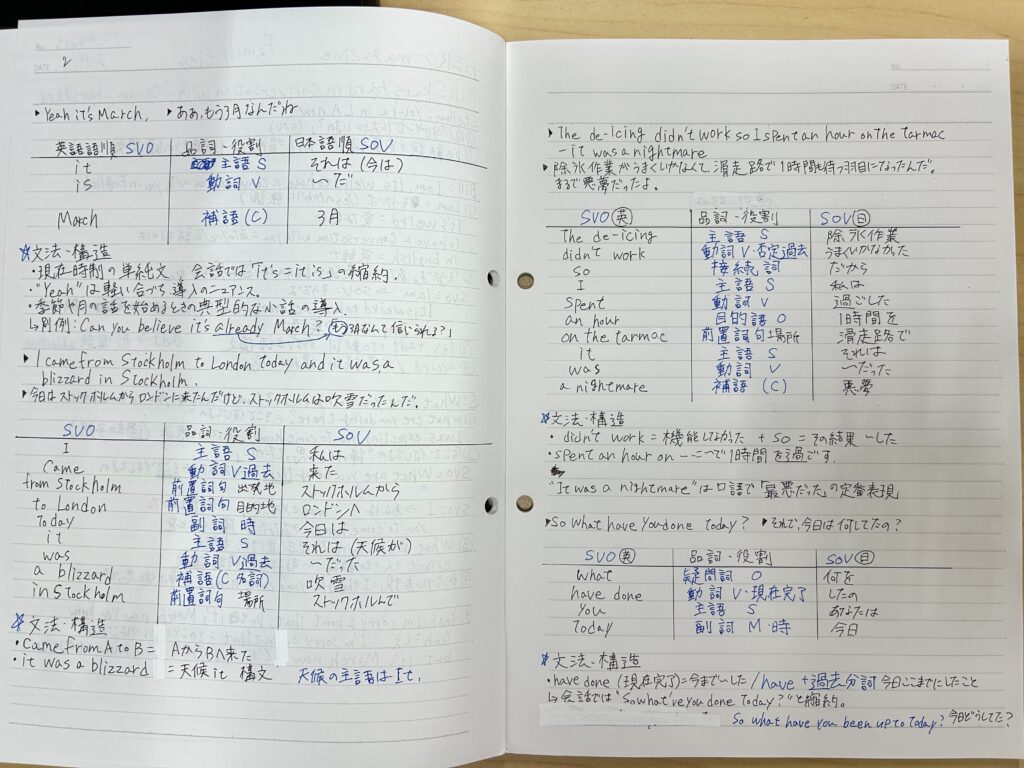 No.
DATE 2
▸Yeah it's March, ▸ああ、もう3月なんだね
英語語順 SVO 品詞・役割 日本語順 SOV
it 主語 S それは (今は)
is 動詞 V 〜だ
March 補語 (C) 3月
☆文法・構造
・現在時制の単純文 会話では「it's = it is」の縮約.
・"Yeah"は軽い合づち導入のニュアンス.
・季節や月の話を始めるときの典型的な小話の導入.
↳別例:Can you believe it's already March? もう3月なんて信じられる?」
▸I came from Stockholm to London today and it was a
blizzard in Stockholm.
▸今日はストックホルムからロンドンに来たんだけど、ストックホルムは吹雪だったんだ。
SVO 品詞・役割 SOV
I 主語 S 私は
came 動詞 V 過去 来た
from Stockholm 前置詞句 出発地 ストックホルムから
to London 前置詞句 目的地 ロンドンへ
today 副詞 時 今日は
it 主語 S それは (天候が)
was 動詞 V 過去 〜だった
a blizzard 補語 (C 名詞) 吹雪
in Stockholm 前置詞句 場所 ストックホルムで
☆文法・構造
・came from A to B = AからBへ来た
・it was a blizzard = 天候 it 構文 天候の主語は It.
No.
DATE
▸The de-icing didn't work so I spent an hour on the tarmac
– it was a nightmare
▸除氷作業がうまくいかなくて、滑走路で1時間も待つ羽目になったんだ。
まるで悪夢だったよ。
SVO 英 品詞・役割 SOV 日
The de-icing 主語 S 除氷作業
didn't work 動詞 V・否定過去 うまくいかなかった
so 接続詞 だから
I 主語 S 私は
spent 動詞 V 過ごした
an hour 目的語 O 1時間を
on the tarmac 前置詞句 場所 滑走路で
it 主語 S それは
was 動詞 V 〜だった
a nightmare 補語 (C) 悪夢
☆文法・構造
・didn't work = 機能しなかった + so = その結果〜した
・spent an hour on 〜 = 〜で1時間を過ごす.
"It was a nightmare"は口語で「最悪だった」の定番表現
▸So what have you done today? ▸それで、今日は何してたの?
SVO 英 品詞・役割 SOV 日
what 疑問詞 O 何を
have done 動詞 V・現在完了 したの
you 主語 S あなたは
today 副詞 M・時 今日
☆文法・構造
・have done (現在完了)=今まで〜した / have + 過去分詞 今日ここまでにしたこと
↳会話では"So what've you done today?"と縮約。
So what have you been up to today? 今日どうしてた?